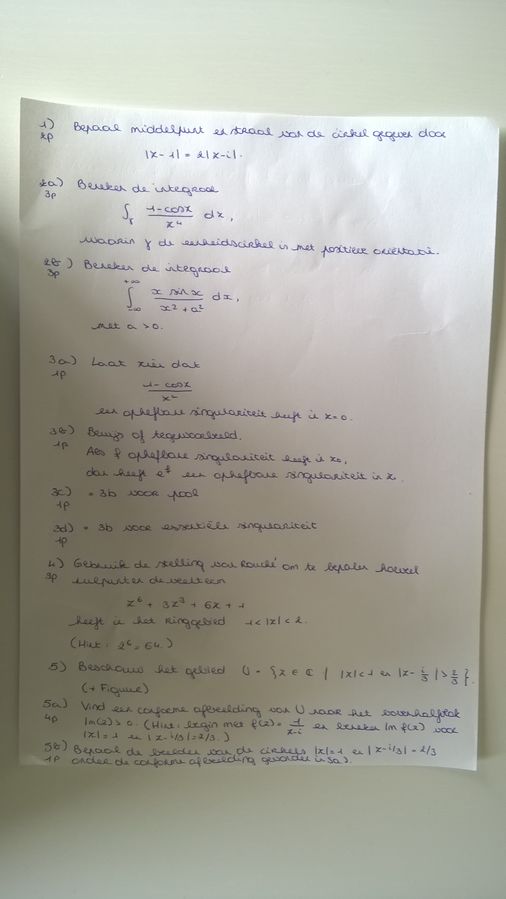 1) Bepaal middelpunt en straal van de cirkel gegeven door
2p
|z-1| = 2|z-i|.
2a) Bereken de integraal
3p
∫γ (1-cosz)/z⁴ dz,
waarin γ de eenheidscirkel is met positieve oriëntatie.
2b) Bereken de integraal
3p
∫_{-∞}^{+∞} (x sin x)/(x²+a²) dx,
met a>0.
3a) Laat zien dat
1p
(1-cosz)/z²
een ophefbare singulariteit heeft in z=0.
3b) Bewijs of tegenvoorbeeld.
1p
Als f ophefbare singulariteit heeft in z₀,
dan heeft e^f een ophefbare singulariteit in z₀.
3c) = 3b voor pool
1p
3d) = 3b voor essentiële singulariteit
1p
4) Gebruik de stelling van Rouché om te bepalen hoeveel
3p
nulpunten de veelterm
z⁶ + 3z³ + 6z + 1
heeft in het ringgebied 1<|z|<2.
(Hint: 2⁶=64.)
5) Beschouw het gebied U = {z ∈ ℂ | |z|<1 en |z-i/3|>2/3}.
(+ Figuur)
5a) Vind een conforme afbeelding van U naar het bovenhalfvlak
4p
Im(z)>0. (Hint: begin met f(z)= 1/(z-i) en bereken Im f(z) voor
|z|=1 en |z-i/3|=2/3.)
5b) Bepaal de beelden van de cirkels |z|=1 en |z-i/3|=2/3
1p
onder de conforme afbeelding gevonden in 5a).